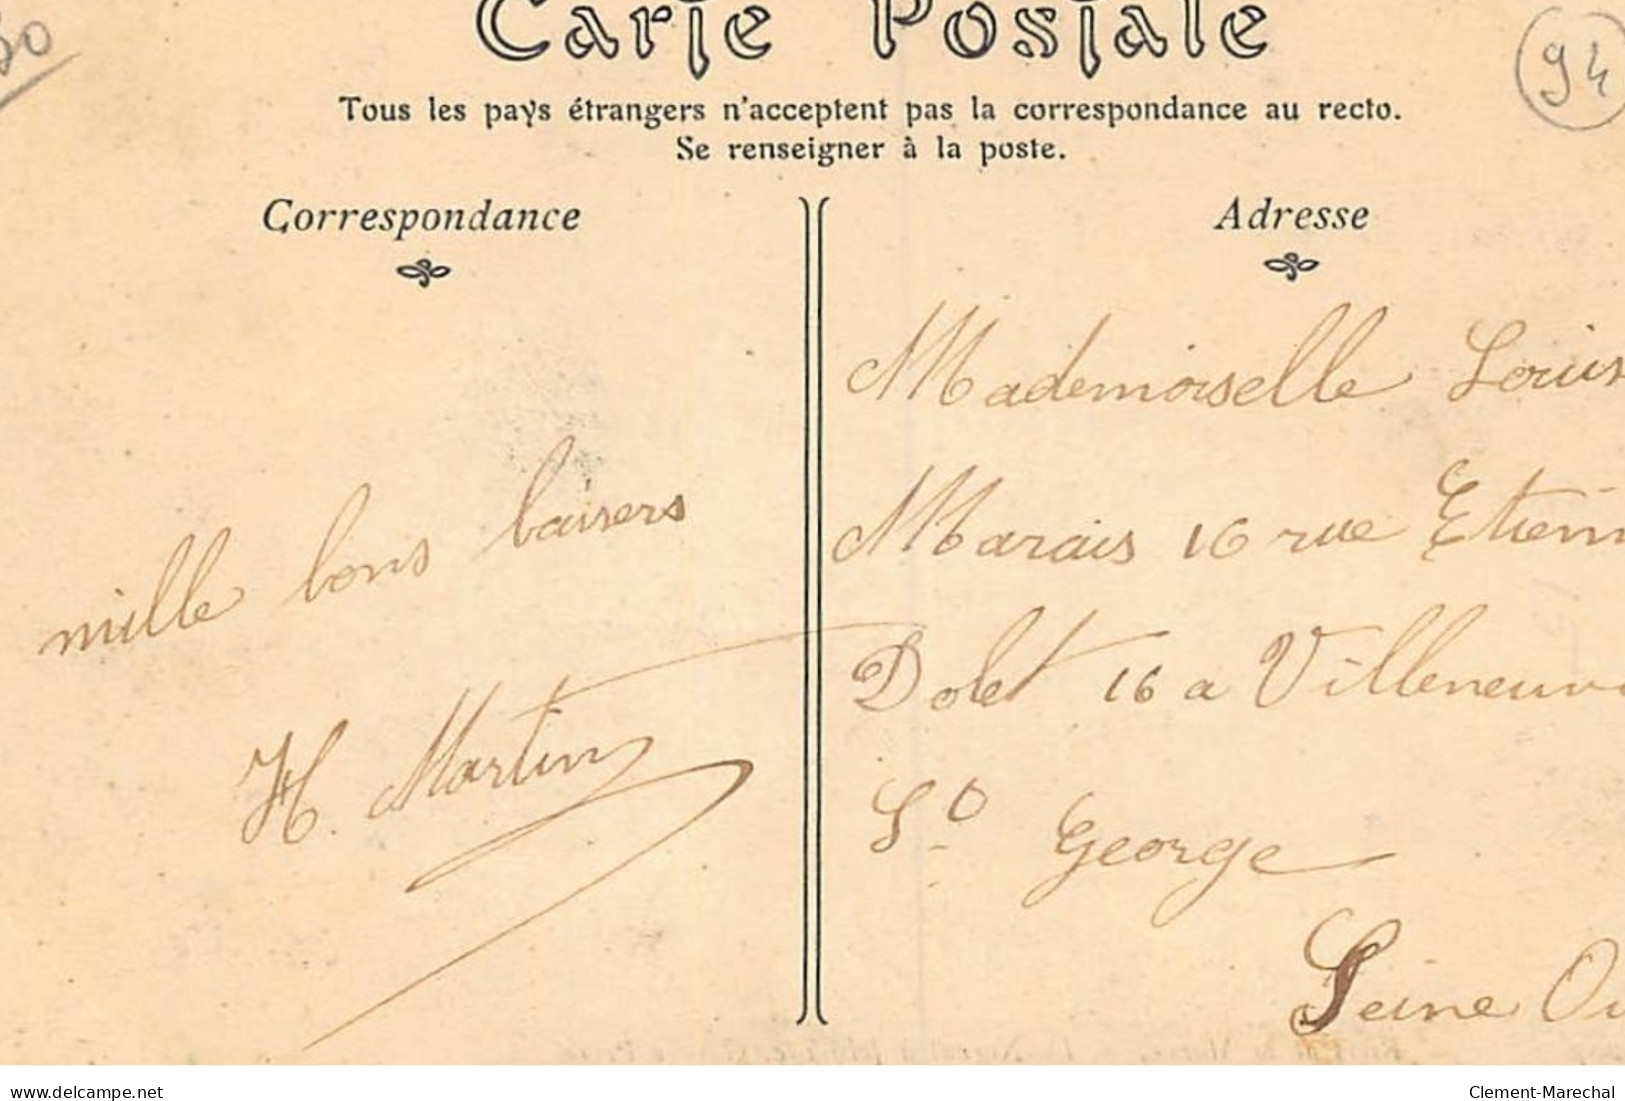 30
Carte Postale
94
Tous les pays étrangers n'acceptent pas la correspondance au recto.
Se renseigner à la poste.
Correspondance
Adresse
mille bons baisers
H. Martin
Mademoiselle Louis
Marais 16 rue Etienn
Dolet 16 a Villeneuve
St George
Seine Oi
delcampe.net
Clement-Marechal